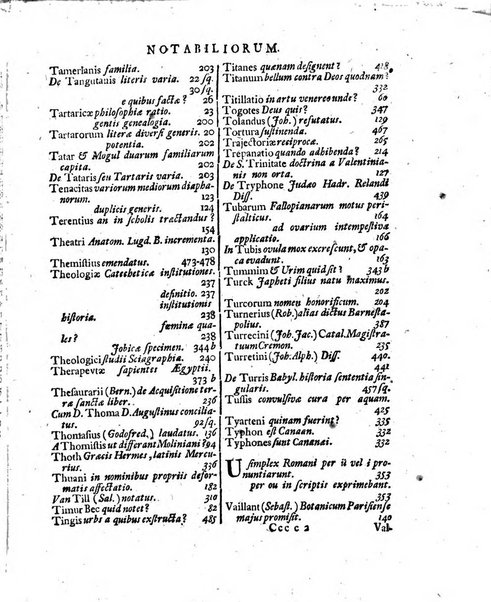 NOTABILIORUM.
Tamerlanis familia. 203
De Tangutanis literis varia. 22 sq.
30 sq.
e quibus factæ? 26
Tartaricæ philosophiæ ratio. 23
gentis genealogia. 200
Tartarorum literæ diversi generis. 20
potentia. 202
Tatar & Mogul duarum familiarum
capita. 202
De Tataris seu Tartaris varia. 203
Tenacitas variorum mediorum diapha-
norum. 123
duplicis generis. 124
Terentius an in scholis tractandus?
154
Theatri Anatom. Lugd. B. incrementa.
130
Themistius emendatus. 473-478
Theologiæ Catecheticæ institutiones.
237
definitio. 237
institutionis
historia. 238
fœminæ qua-
les? 238
Jobicæ specimen. 344 b
Theologici studii Sciagraphia. 240
Therapevtæ sapientes Ægyptii.
373 b
Thesaurarii (Bern.) de Acquisitione ter-
ræ sanctæ liber. 236
Cum D. Thoma D. Augustinus concilia-
tus. 92 sq.
Thomasius (Godofred.) laudatus. 136
A Thomistis ut differant Molinistæ? 94
Thoth Græcis Hermes, latinis Mercu-
rius. 336
Thuani in nominibus propriis defor-
matis affectatio. 182
Van Till (Sal.) notatus. 310
Timur Bec quid notet? 82
Tingis urbs a quibus exstructa? 485
Titanes quænam designent? 418
Titanum bellum contra Deos quodnam?
332
Titillatio in artu venereo unde? 60
Togotes Deus quis? 347
Tolandus (Joh.) refutatus. 129
Tortura sustinenda. 467
Trajectoriæ reciprocæ. 265
Trepanatio quando adhibenda? 121
De S. Trinitate doctrina a Valentinia-
nis non orta. 127
De Tryphone Judæo Hadr. Relandi
Diss. 439
Tubarum Fallopianarum motus peri-
stalticus. 164
ad ovarium intempestiva
applicatio. 166
In Tubis ovula mox excrescunt, & opa-
ca evadunt. 163
Tummim & Urim quid sit? 343 b
Turck Japheti filius natu maximus.
202
Turcorum nomen honorificum. 204
Turnerius (Rob.) alias dictus Barnesta-
polius. 387
Turrecini (Joh. Jac.) Catal. Magistra-
tuum Cremon. 235
Turretini (Joh. Alph.) Diss. 440.
441
De Turris Babyl. historia sententia sin-
gularis. 457 sq.
Tussis convulsivæ cura per aquam.
425
Tyarteni quinam fuerint? 335
Typhon est Canaan. 335
Typhones sunt Cananæi. 332
U simplex Romani per ü vel i pro-
nuntiarunt. 353
per ou in scriptis exprimebant.
353
Vaillant (Sebast.) Botanicum Parisiense
majus promisit. 140
Ccccc 2 Val-